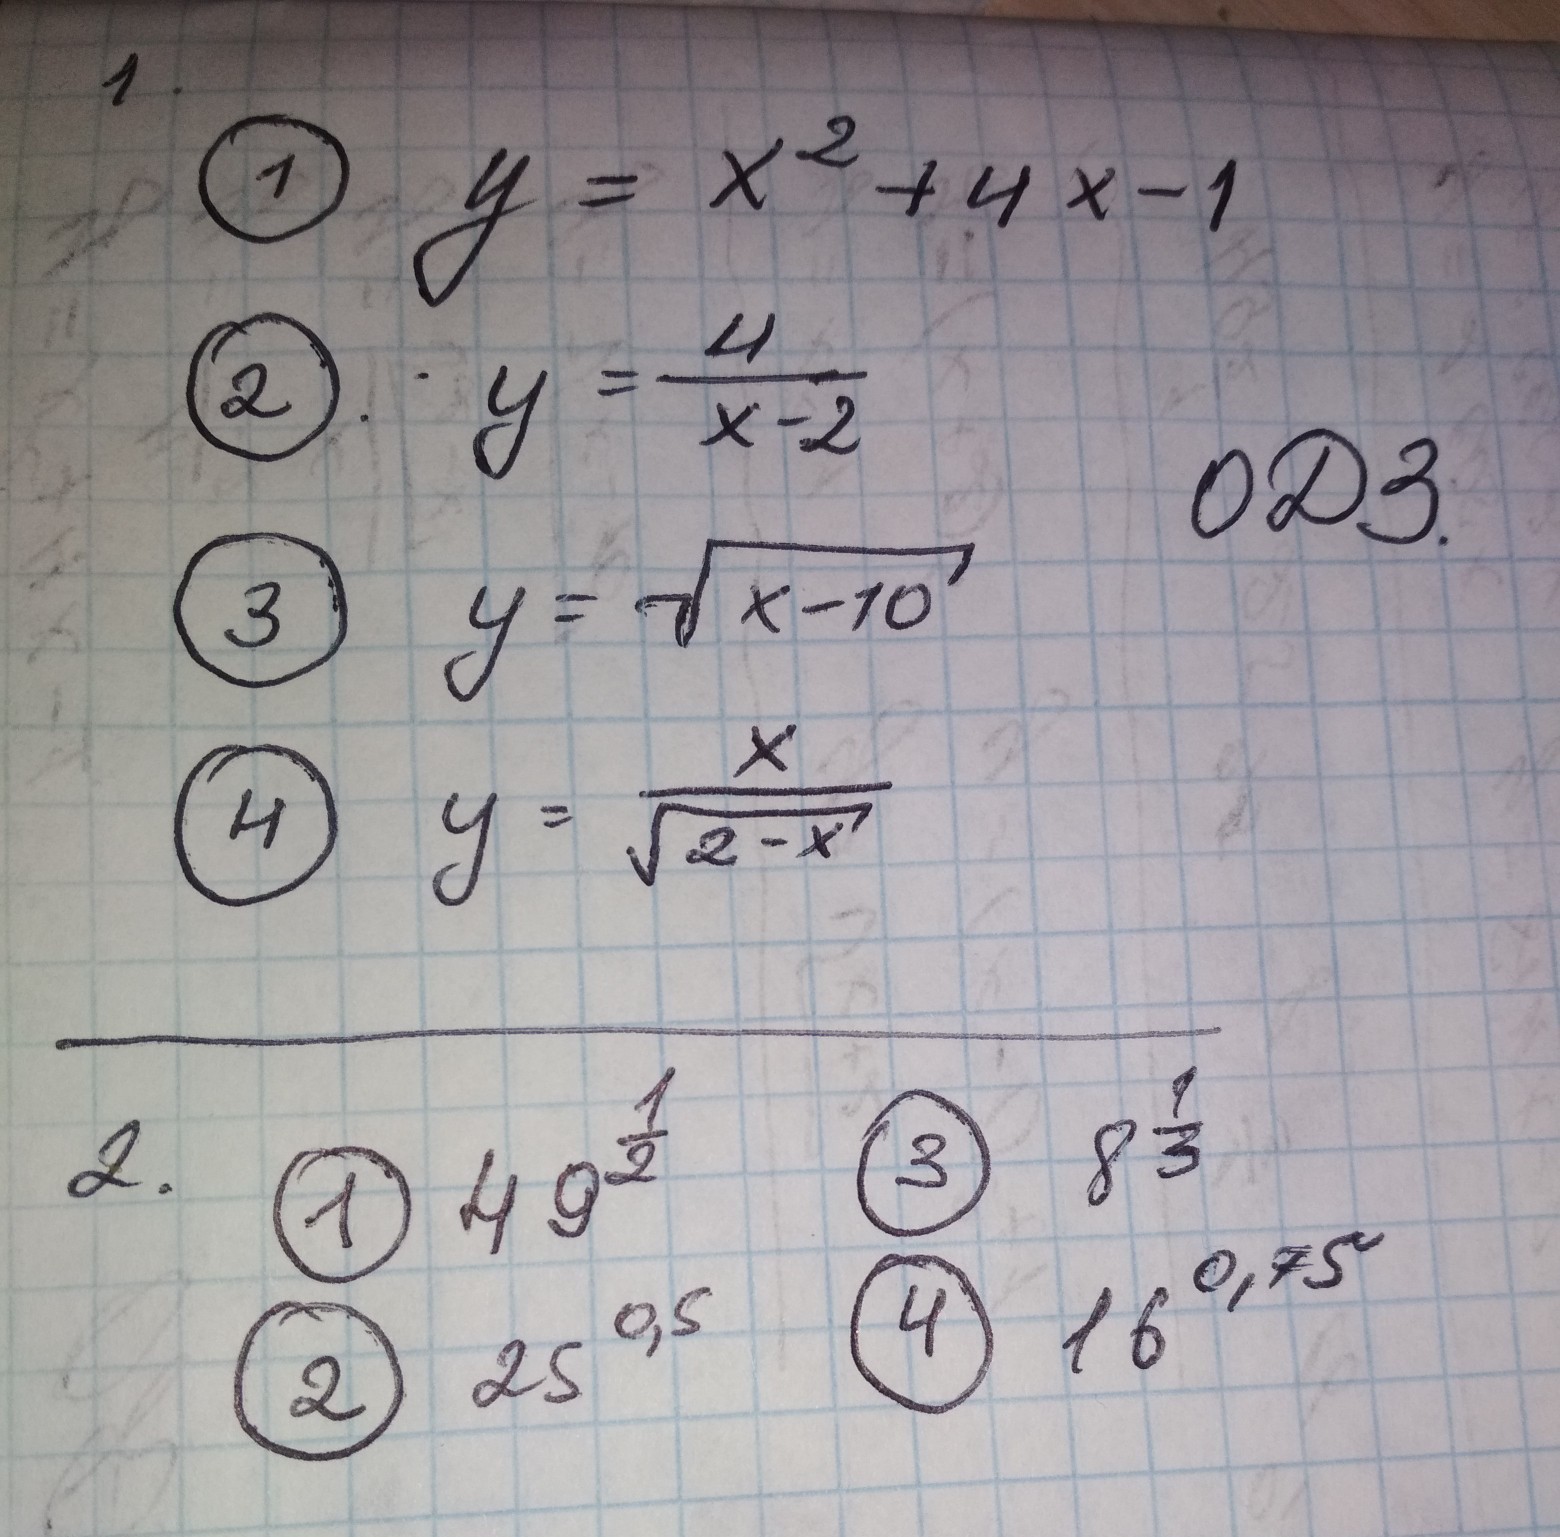 1.
① y = x² + 4x - 1
②. y = 4/(x-2)
ОДЗ.
③ y = √(x-10)
④ y = x/√(2-x)
2. ① 49^(1/2) ③ 8^(1/3)
② 25^0,5 ④ 16^0,75